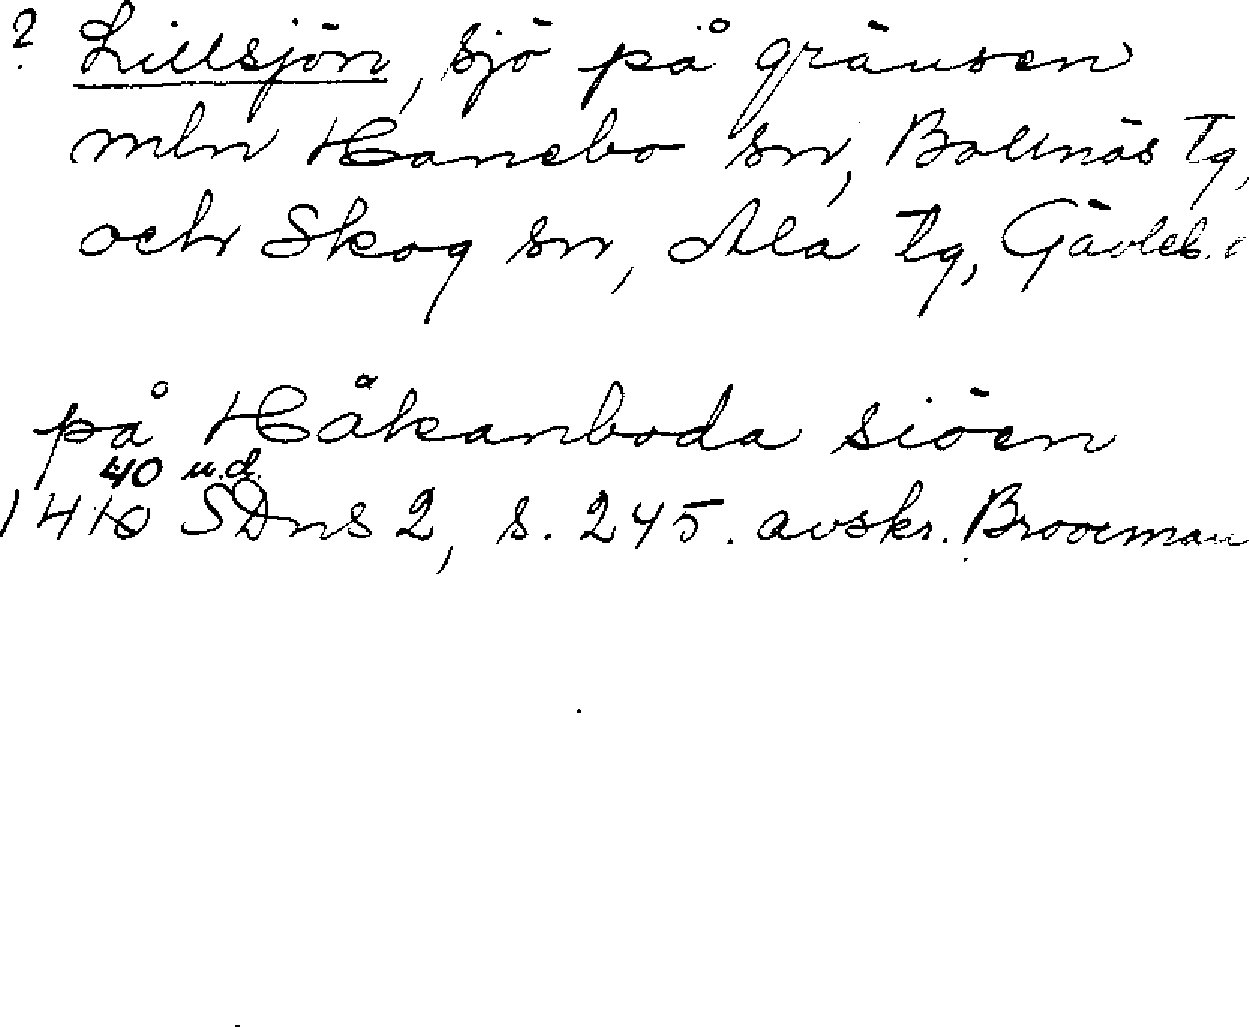 ? Lillsjön, sjö på gränsen
mln Hanebo sn, Bollnäs tg,
och Skog sn, Ala tg, Gävleb.
på Håkanboda siöen
40 u.d.
1410 SDns 2, s. 245. avskr. Brooeman